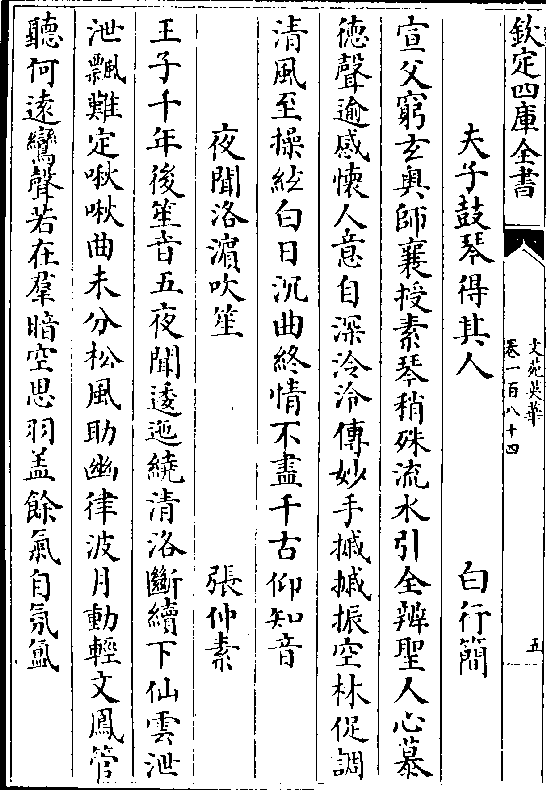 欽定四庫全書
文苑英華
卷一百八十四
五
夫子鼓琴得其人　白行簡
宣父窮玄奥師襄授素琴稍殊流水引全辨聖人心慕
德聲逾感懷人意自深泠泠傳妙手摵摵振空林促調
清風至操絃白日沉曲終情不盡千古仰知音
夜聞洛濵吹笙　張仲素
王子千年後笙音五夜聞逶迤繞清洛斷續下仙雲泄
泄飄難定啾啾曲未分松風助幽律波月動輕文鳳管
聽何逺鸞聲若在羣暗空思羽盖餘氣自氛氲